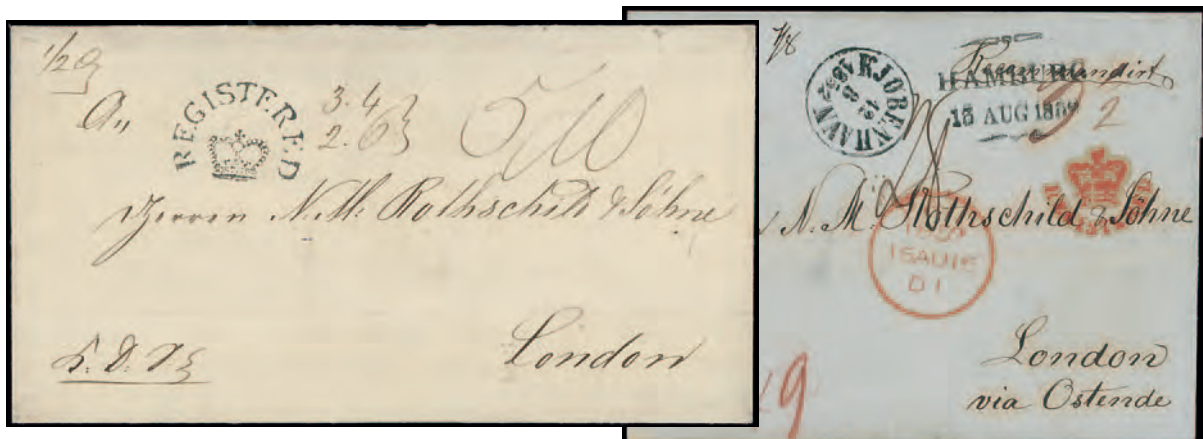 1/2
An
REGISTERED
3.4
2.6
5/10
Herren N. M. Rothschild & Söhne
London
7/8
KJØBENHAVN
12 8
Recommandirt
HAMBURG
13 AUG 1852
2
N. M. Rothschild & Söhne
16AU16
D1
London
via Ostende
9